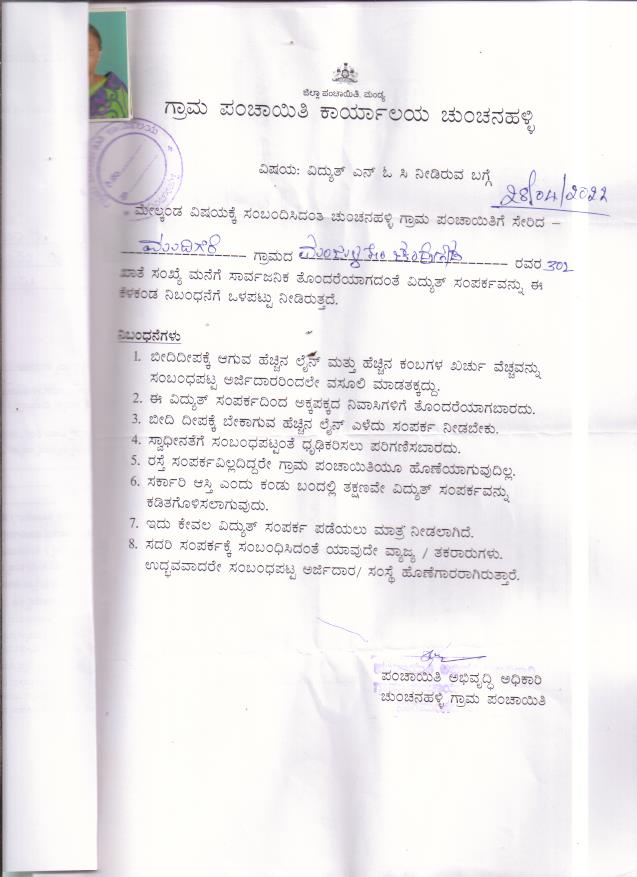 ಜಿಲ್ಲಾ ಪಂಚಾಯಿತಿ. ಮಂಡ್ಯ
ಗ್ರಾಮ ಪಂಚಾಯಿತಿ ಕಾರ್ಯಾಲಯ ಚುಂಚನಹಳ್ಳಿ
ವಿಷಯ: ವಿದ್ಯುತ್ ಎನ್ ಓ ಸಿ ನೀಡಿರುವ ಬಗ್ಗೆ
28/04/2022
ಮೇಲ್ಕಂಡ ವಿಷಯಕ್ಕೆ ಸಂಬಂದಿಸಿದಂತೆ ಚುಂಚನಹಳ್ಳಿ ಗ್ರಾಮ ಪಂಚಾಯಿತಿಗೆ ಸೇರಿದ –
ಗ್ರಾಮದ ರವರ 302
ಖಾತೆ ಸಂಖ್ಯೆ ಮನೆಗೆ ಸಾರ್ವಜನಿಕ ತೊಂದರೆಯಾಗದಂತೆ ವಿದ್ಯುತ್ ಸಂಪರ್ಕವನ್ನು ಈ
ಕೆಳಕಂಡ ನಿಬಂಧನೆಗೆ ಒಳಪಟ್ಟು ನೀಡಿರುತ್ತದೆ.
ನಿಬಂಧನೆಗಳು
1. ಬೀದಿದೀಪಕ್ಕೆ ಆಗುವ ಹೆಚ್ಚಿನ ಲೈನ್ ಮತ್ತು ಹೆಚ್ಚಿನ ಕಂಬಗಳ ಖರ್ಚು ವೆಚ್ಚವನ್ನು
ಸಂಬಂಧಪಟ್ಟ ಅರ್ಜಿದಾರರಿಂದಲೇ ವಸೂಲಿ ಮಾಡತಕ್ಕದ್ದು.
2. ಈ ವಿದ್ಯುತ್ ಸಂಪರ್ಕದಿಂದ ಅಕ್ಕಪಕ್ಕದ ನಿವಾಸಿಗಳಿಗೆ ತೊಂದರೆಯಾಗಬಾರದು.
3. ಬೀದಿ ದೀಪಕ್ಕೆ ಬೇಕಾಗುವ ಹೆಚ್ಚಿನ ಲೈನ್ ಎಳೆದು ಸಂಪರ್ಕ ನೀಡಬೇಕು.
4. ಸ್ವಾಧೀನತೆಗೆ ಸಂಬಂಧಪಟ್ಟಂತೆ ಧೃಢಿಕರಿಸಲು ಪರಿಗಣಿಸಬಾರದು.
5. ರಸ್ತೆ ಸಂಪರ್ಕವಿಲ್ಲದಿದ್ದರೇ ಗ್ರಾಮ ಪಂಚಾಯಿತಿಯೂ ಹೊಣೆಯಾಗುವುದಿಲ್ಲ.
6. ಸರ್ಕಾರಿ ಆಸ್ತಿ ಎಂದು ಕಂಡು ಬಂದಲ್ಲಿ ತಕ್ಷಣವೇ ವಿದ್ಯುತ್ ಸಂಪರ್ಕವನ್ನು
ಕಡಿತಗೊಳಿಸಲಾಗುವುದು.
7. ಇದು ಕೇವಲ ವಿದ್ಯುತ್ ಸಂಪರ್ಕ ಪಡೆಯಲು ಮಾತ್ರ ನೀಡಲಾಗಿದೆ.
8. ಸದರಿ ಸಂಪರ್ಕಕ್ಕೆ ಸಂಬಂಧಿಸಿದಂತೆ ಯಾವುದೇ ವ್ಯಾಜ್ಯ / ತಕರಾರುಗಳು.
ಉದ್ಭವವಾದರೇ ಸಂಬಂಧಪಟ್ಟ ಅರ್ಜಿದಾರ/ ಸಂಸ್ಥೆ ಹೊಣೆಗಾರರಾಗಿರುತ್ತಾರೆ.
ಪಂಚಾಯಿತಿ ಅಭಿವೃದ್ಧಿ ಅಧಿಕಾರಿ
ಚುಂಚನಹಳ್ಳಿ ಗ್ರಾಮ ಪಂಚಾಯಿತಿ